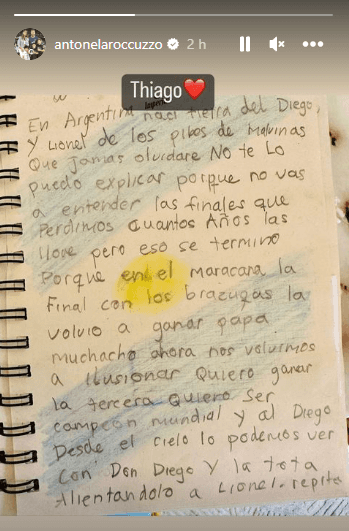 antonelaroccuzzo 2 h
Thiago
En Argentina naci tierra del Diego,
Y Lionel de los pibes de Malvinas
Que jamas olvidare No te Lo
puedo explicar porque no vas
a entender las finales que
Perdimos Cuantos Años las
llore pero eso se termino
Porque en el Maracana la
final con los brazugas la
volvio a ganar papa
muchacho ahora nos volvimos
a ilusionar Quiero ganar
la tercera Quiero Ser
campeon mundial y al Diego
Desde el cielo lo podemos ver
Con Don Diego Y la tota
Alientandolo a Lionel. repita